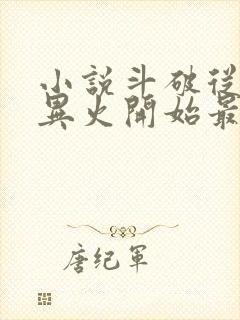 小說斗破從
異火開始最
唐纪軍